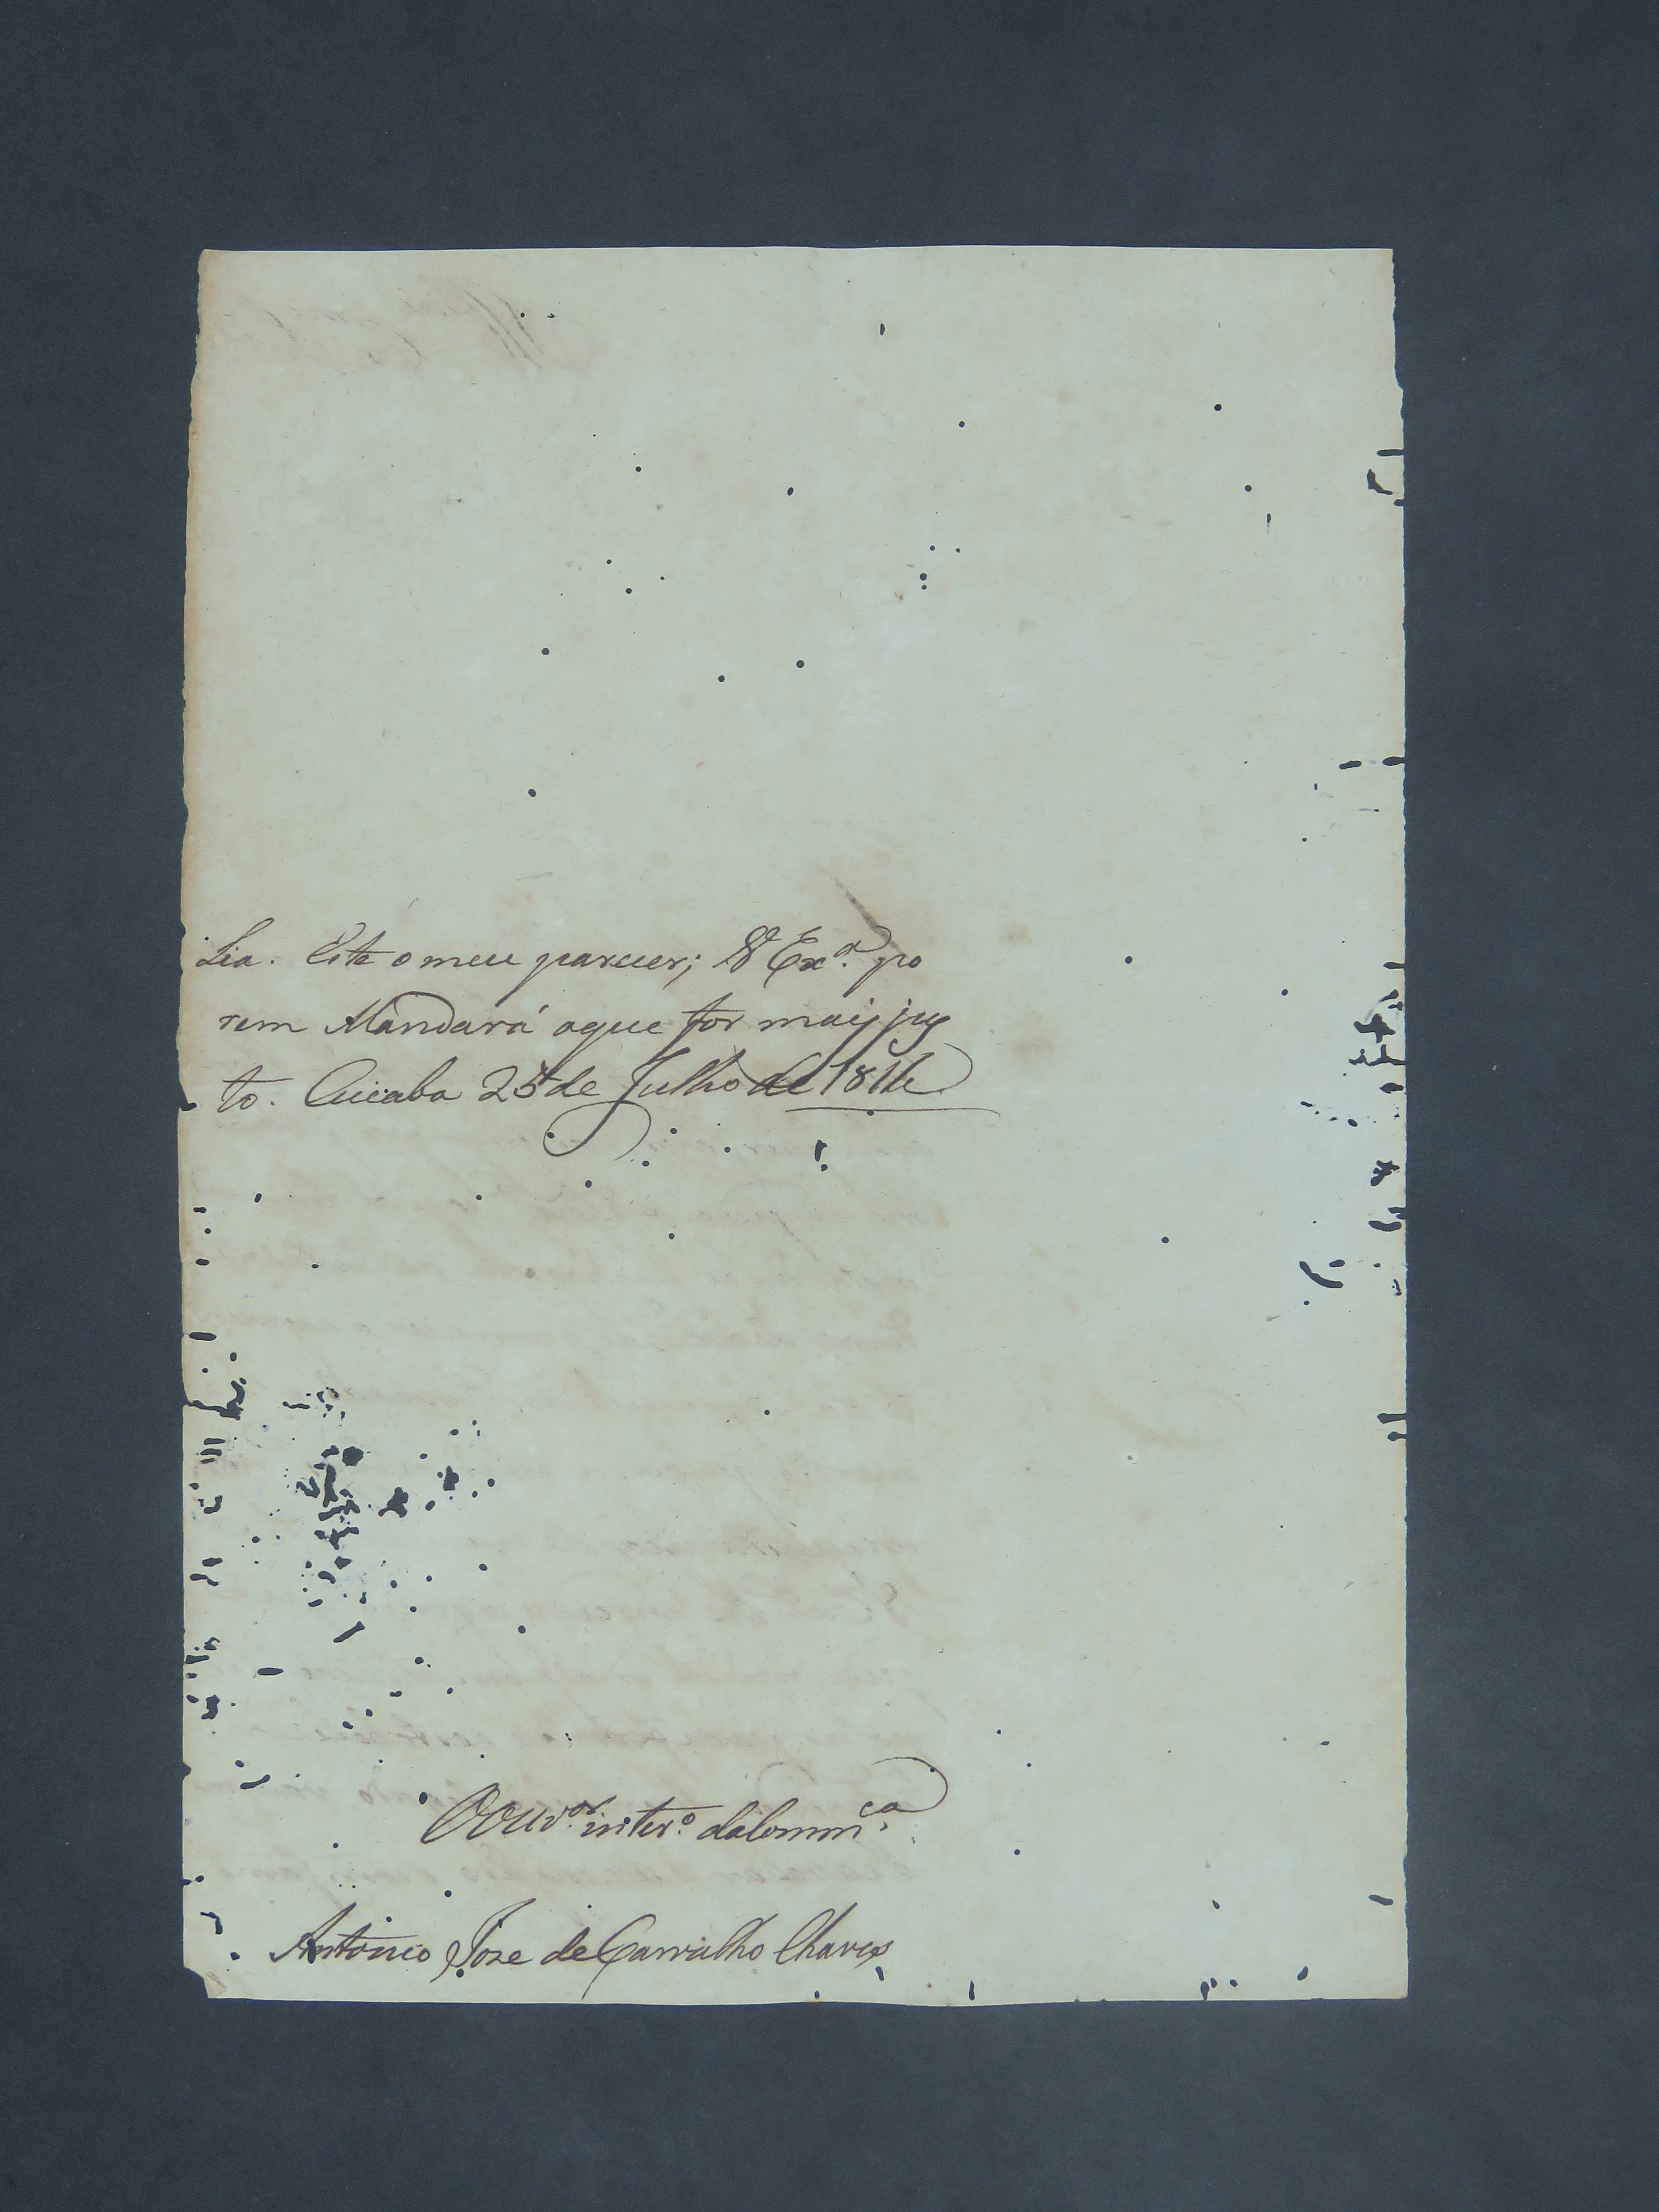 lia. Este o meu parecer; V Exª. po
rem Mandará oque for mais jus
to. Cuiaba 25 de Julho de 1816
O Ouvor. intero. da Comm.ca
Antonio Joze de Carvalho Chaves